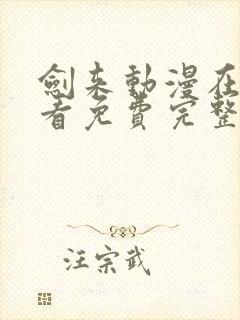 劍来動漫在
看免費完整
汪宗武